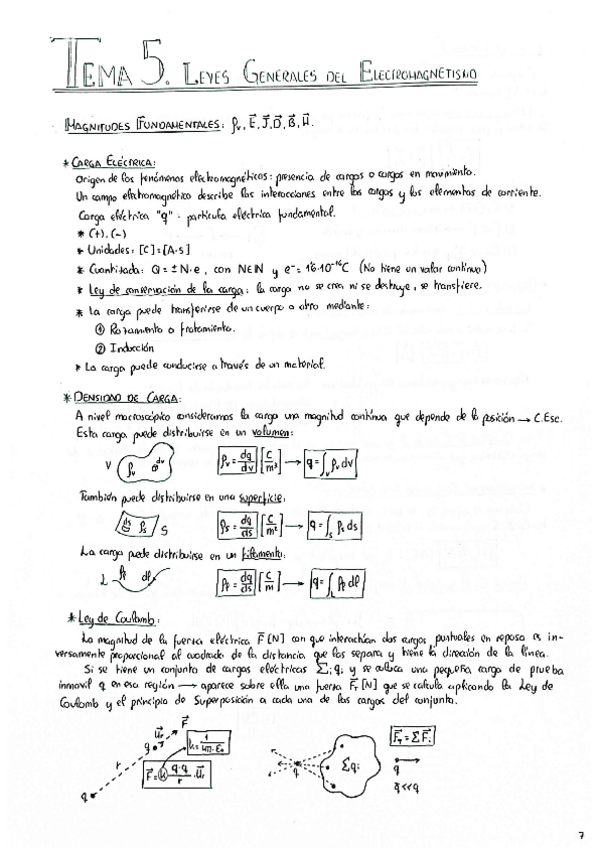 TEMA 5. LEYES GENERALES DEL ELECTROMAGNETISMO
MAGNITUDES FUNDAMENTALES: ρv, E⃗, J⃗, D⃗, B⃗, H⃗.
* CARGA ELÉCTRICA:
Origen de los fenómenos electromagnéticos: presencia de cargas o cargas en movimiento.
Un campo electromagnético describe las interacciones entre las cargas y los elementos de corriente.
Carga eléctrica "q": partícula eléctrica fundamental.
* (+), (-)
* Unidades: [C]=[A·s]
* Cuantizada: Q = ± N·e, con N∈ℕ y e⁻= 1'6·10⁻¹⁹C (No tiene un valor continuo)
* Ley de conservación de la carga: la carga no se crea ni se destruye, se transfiere.
* La carga puede transferirse de un cuerpo a otro mediante:
① Rozamiento o frotamiento.
② Inducción
* La carga puede conducirse a través de un material.
* DENSIDAD DE CARGA:
A nivel macroscópico consideramos la carga una magnitud continua que depende de la posición → C.Esc.
Esta carga puede distribuirse en un volumen:
V ρv dv ρv = dq/dv [C/m³] → q = ∫v ρv dv
También puede distribuirse en una superficie:
ds ρs S ρs = dq/ds [C/m²] → q = ∫s ρs ds
La carga puede distribuirse en un filamento:
L ρℓ dℓ ρℓ = dq/ds [C/m] → q = ∫L ρℓ dℓ
* Ley de Coulomb:
La magnitud de la fuerza eléctrica F⃗ [N] con que interactúan dos cargas puntuales en reposo es in-
versamente proporcional al cuadrado de la distancia que las separa y tiene la dirección de la línea.
Si se tiene un conjunto de cargas eléctricas Σi qi y se coloca una pequeña carga de prueba
inmóvil q en esa región → aparece sobre ella una fuerza F⃗T [N] que se calcula aplicando la Ley de
Coulomb y el principio de Superposición a cada una de las cargas del conjunto.
q r q u⃗r F⃗
k = 1/4π·ε₀
F⃗ = k q·q/r · u⃗r
q Σqi
F⃗T = ΣF⃗i
q
q<<q
7